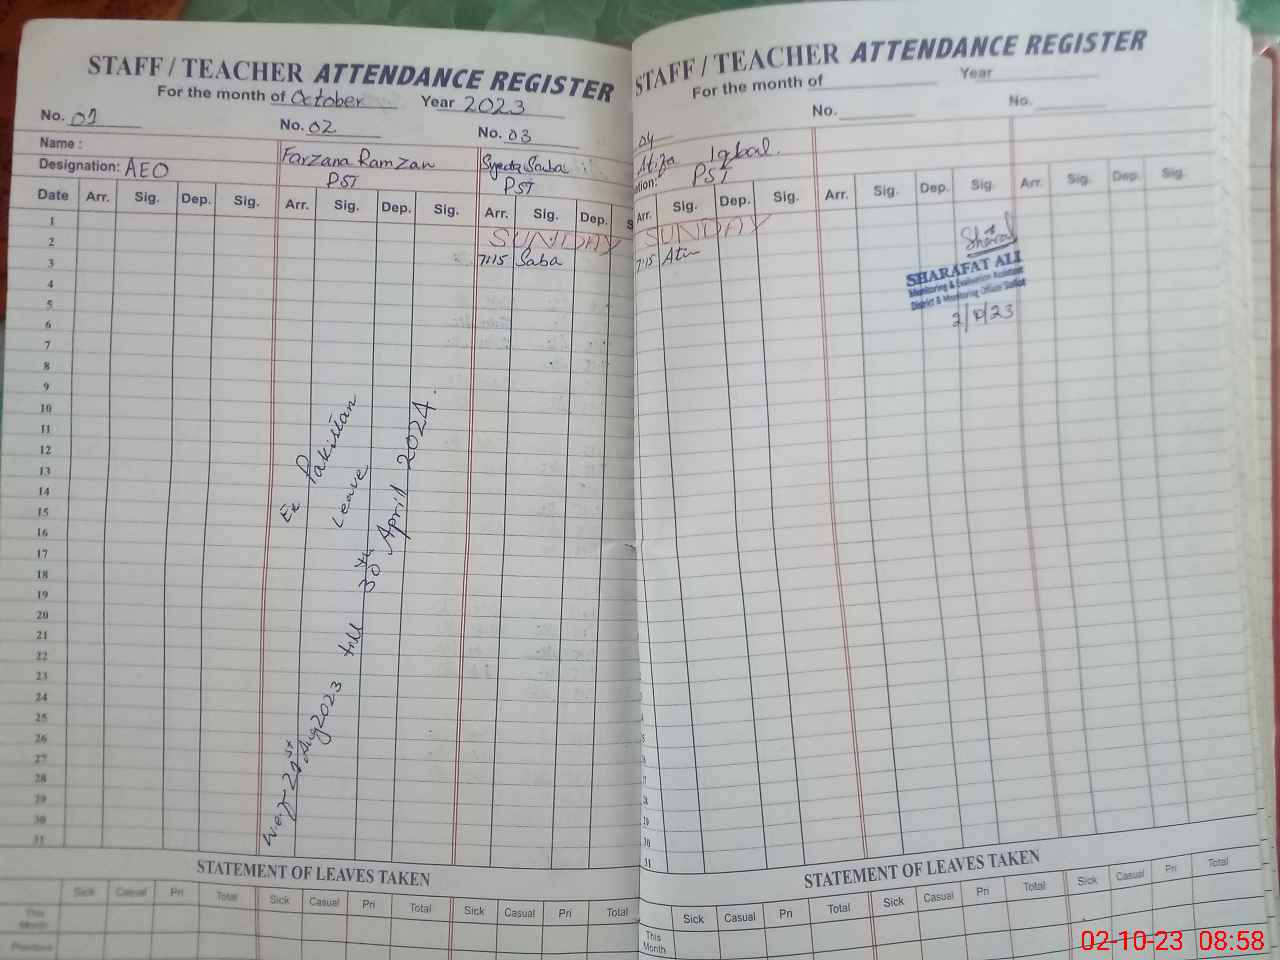 STAFF / TEACHER ATTENDANCE REGISTER
For the month of October Year 2023
No. 01 No. 02 No. 03
Name : Farzana Ramzan Syeda Saba
Designation: AEO PST PST
Date Arr. Sig. Dep. Sig. Arr. Sig. Dep. Sig. Arr. Sig. Dep. S
1 SUNDAY
2 7:15 Saba
3
4
5
6
7
8
9
10
11
12
13
14
15
16
17
18
19
20
21
22
23
24
25
26
27
28
29
30
31
Ex Pakistan
Leave
21st Aug 2023 till 30th April 2024.
STATEMENT OF LEAVES TAKEN
Sick Casual Pri Total Sick Casual Pri Total Sick Casual Pri Total
This Month
Previous
STAFF / TEACHER ATTENDANCE REGISTER
For the month of Year
04 No. No.
Iqbal.
ation: PST
Arr. Sig. Dep. Sig. Arr. Sig. Dep. Sig. Arr. Sig. Dep. Sig.
SUNDAY
7:15
SHARAFAT ALI
Monitoring & Evaluation Assistant
2/10/23
STATEMENT OF LEAVES TAKEN
Sick Casual Pri Total Sick Casual Pri Total Sick Casual Pri Total
This Month
02-10-23 08:58